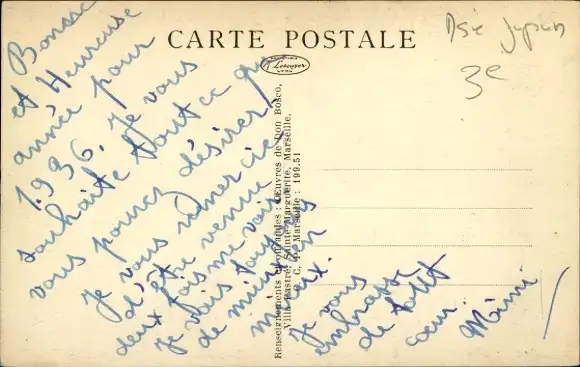 CARTE POSTALE
Lescuyer
LYON
Bonne
et Heureuse
année pour
1936. Je vous
souhaite tout ce que
vous pouvez désirer,
Je vous remercie
d'être venue
deux fois me voir
Je vais toujours
de mieux en
mieux.
Je vous
embrasse
de tout
cœur.
Mimi
Renseignements et offrandes : Œuvres de Don Bosco,
Villa Pastré, Sainte-Marguerite, Marseille.
C. C. Marseille : 199.51
3e